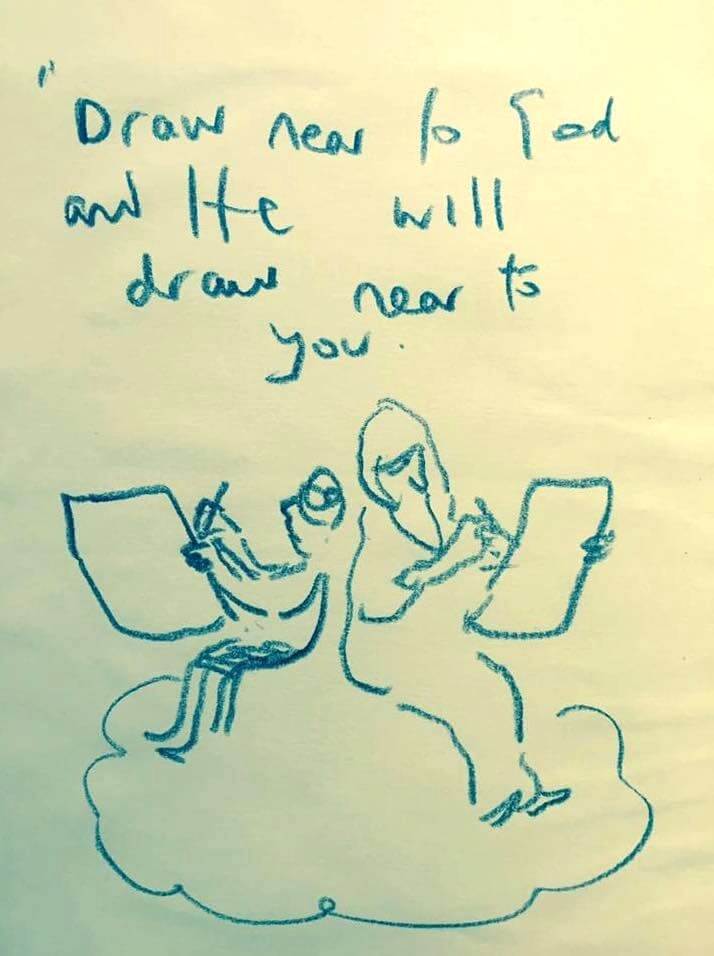 "Draw near to God
and He will
draw near to
you.